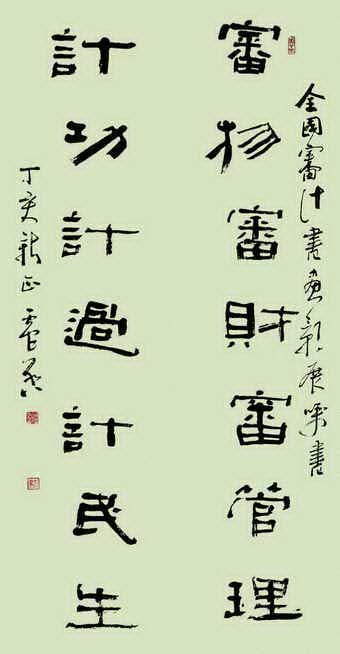 全國審計書畫影展書
審物審財審管理
計功計過計民生
丁亥新正